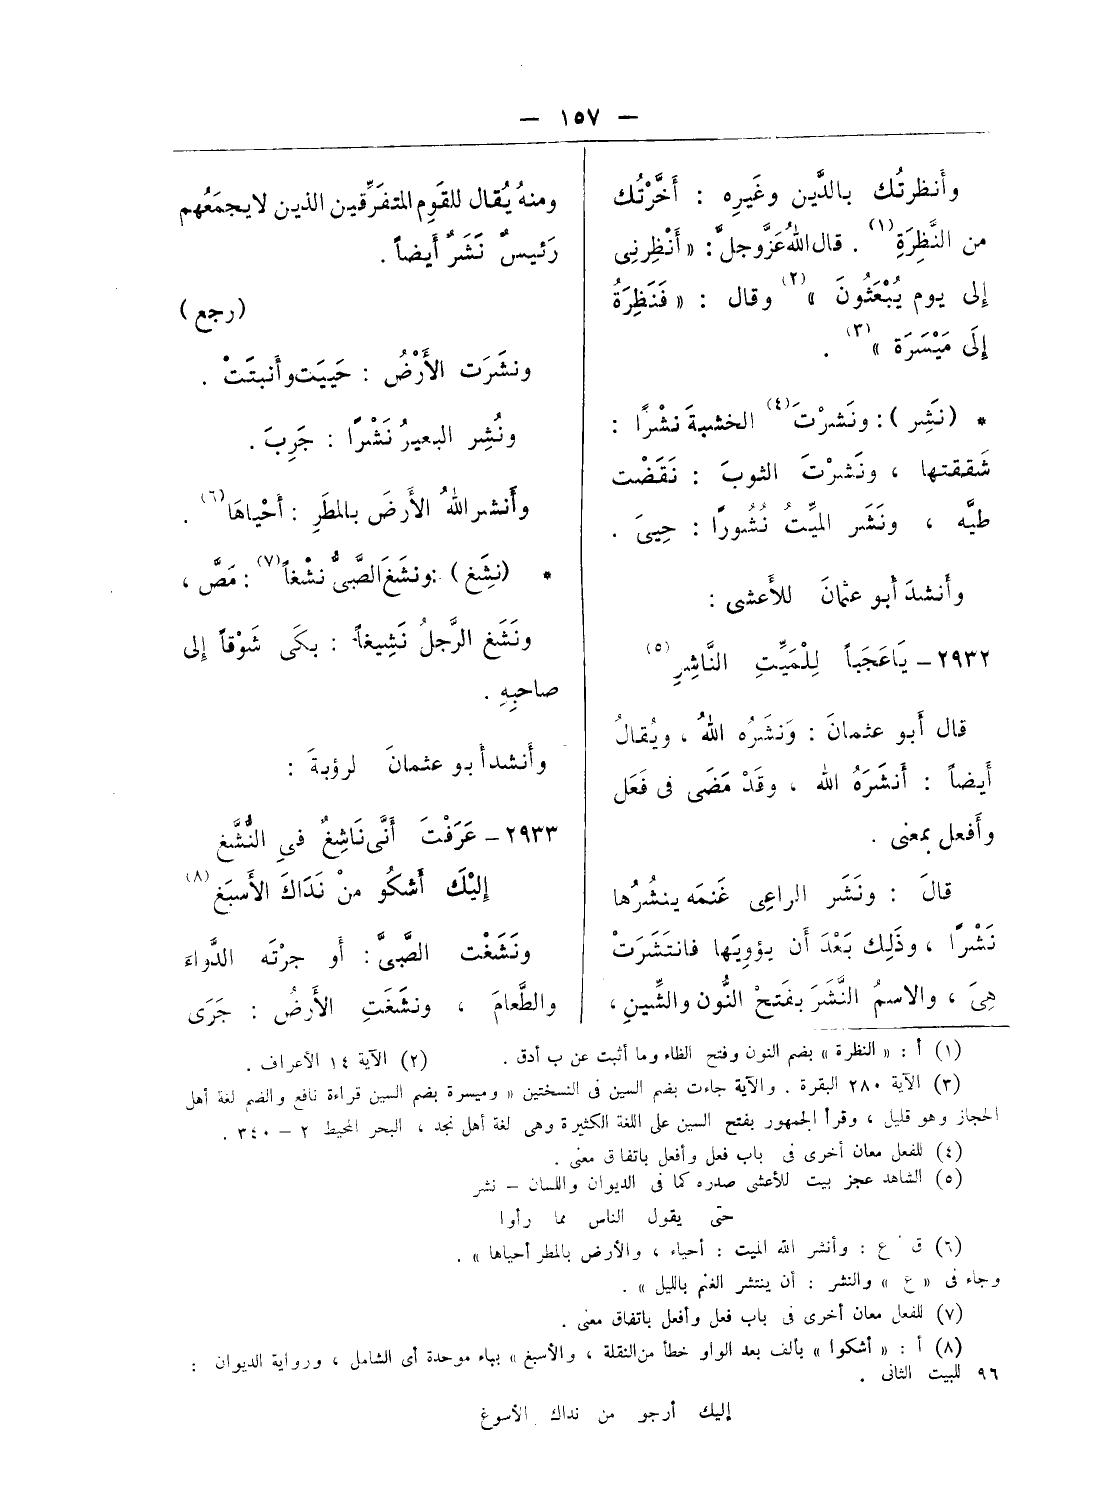 — ١٥٧ —
وأنظرتُك بالدَّين وغَيرِه : أخَّرْتُك
من النَّظِرَةِ(١) . قال اللهُ عَزَّ وجلَّ : « أَنْظِرْنِى
إلى يوم يُبْعَثُونَ »(٢) وقال : « فَنَظِرَةُ
إلَى مَيْسَرَة »(٣) .
* (نَشِر) : ونَشرْتَ(٤) الخشبةَ نشْرًا :
شَققتها ، ونَشرْتَ الثوبَ : نَقَضْت
طيَّه ، ونَشَر الميِّتُ نُشُورًا : حِيىَ .
وأنشدَ أبو عثمانَ للأَعشى :
٢٩٣٢ – يَاعَجَباً لِلْمَيِّتِ النَّاشِرِ(٥)
قال أَبو عثمانَ : وَنشَرُه اللهُ ، ويُقالُ
أَيضاً : أَنشَرَهُ الله ، وقَدْ مَضَى فى فَعَل
وأَفعل بمعنى .
قالَ : ونَشَر الراعِى غَنمَه ينشُرُها
نَشْرًا ، وذَلِك بَعْدَ أَن يؤويَها فانتَشَرَتْ
هِىَ ، والاسمُ النَّشَرَ بفَتحْ النُّون والشِّينِ ،
ومنهُ يُقال للقَومِ المتفَرِّقين الذين لا يجمَعُهم
رَئيسٌ نَشَرٌ أَيضاً .
(رجع)
ونشَرَت الأَرْضُ : حَييَت وأَنبتَتْ .
ونُشِر البعيرُ نَشْرًا : جَرِبَ .
وأَنشر اللهُ الأَرضَ بالمطَرِ : أَحْياهَا(٦) .
* (نشِغ) : ونشَغَ الصَّبىُّ نشْغاً(٧) : مَصَّ ،
ونَشَغ الرَّجلُ نَشِيغاً : بكَى شَوْقاً إلى
صاحبِهِ .
وأَنشد أبو عثمانَ لرؤبةَ :
٢٩٣٣ – عَرَفْتَ أَنَّى نَاشِغٌ فىِ النُّشَّغِ
إلَيْكَ أَشكُو منْ نَدَاكَ الأَسبَغِ(٨)
ونَشَغْت الصَّبىَّ : أَو جرْتَه الدَّواءَ
والطَّعامَ ، ونشَغَتِ الأَرضُ : جَرَى
(١) أ : « النظرة » بضم النون وفتح الظاء وما أثبت عن ب أدق . (٢) الآية ١٤ الأعراف .
(٣) الآية ٢٨٠ البقرة . والآية جاءت بضم السين فى النسختين « وميسرة بضم السين قراءة نافع والضم لغة أهل
الحجاز وهو قليل ، وقرأ الجمهور بفتح السين على اللغة الكثيرة وهى لغة أهل نجد ، البحر المحيط ٢ – ٣٤٠ .
(٤) للفعل معان أخرى فى باب فعل وأفعل باتفاق معنى .
(٥) الشاهد عجز بيت للأعشى صدره كما فى الديوان واللسان – نشر
حتى يقول الناس مما رأوا
(٦) ق ع : وأنشر الله الميت : أحياء ، والأرض بالمطر أحياها » .
وجاء فى « ع » والنشر : أن ينتشر الغنم بالليل » .
(٧) للفعل معان أخرى فى باب فعل وأفعل باتفاق معنى .
(٨) أ : « أشكوا » بألف بعد الواو خطأ من النقلة ، والأسبغ » بباء موحدة أى الشامل ، ورواية الديوان :
٩٦ للبيت الثانى .
إليك أرجو من نداك الأسوغ